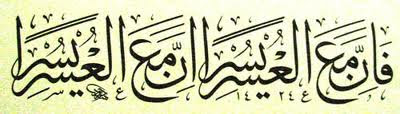 فَاِنَّ مَعَ الْعُسْرِ يُسْرًا اِنَّ مَعَ الْعُسْرِ يُسْرًا
١٤٢٤